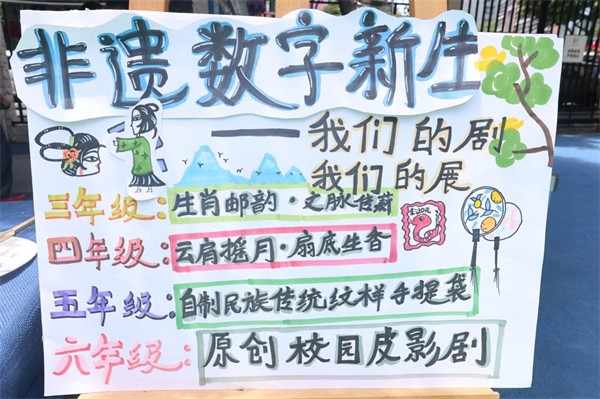 非遗数字新生
——我们的剧
我们的展
三年级:生肖邮韵·文脉传薪
四年级:云肩摇月·扇底生香
五年级:自制民族传统纹样手提袋
六年级:原创校园皮影剧